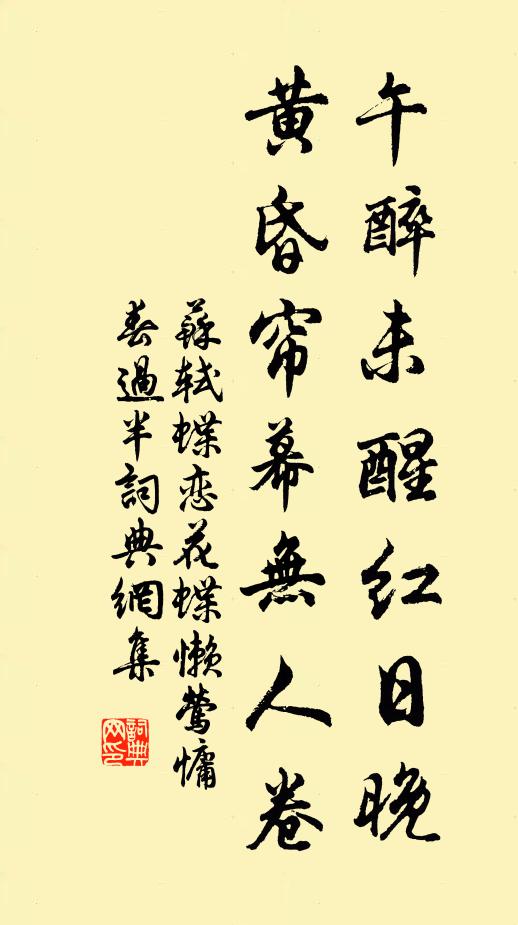 午醉未醒红日晚
黄昏帘幕無人卷
蘇軾蝶恋花蝶懒莺慵
春過半詞典網集
詞典
网印